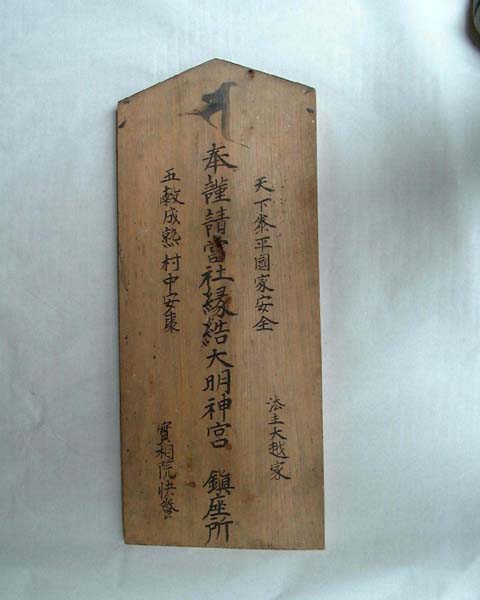 天下泰平國家安全
法主大越家
奉謹請當社縁結大明神宮 鎮座所
五穀成熟村中安康
實相院快